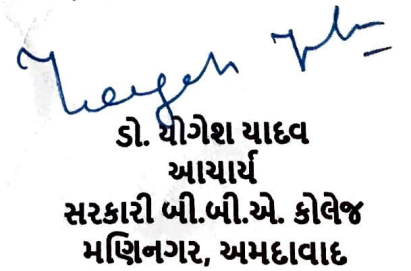 ડો. યોગેશ યાદવ
આચાર્ય
સરકારી બી.બી.એ. કોલેજ
મણિનગર, અમદાવાદ